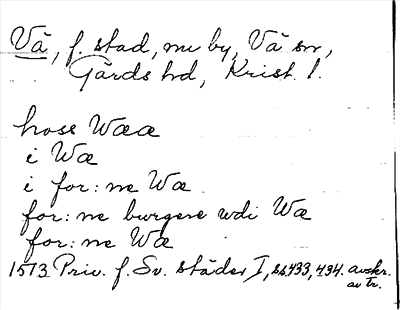 Vä, f. stad, nu by, Vä sn,
Gärds hd, Krist. l.
hoss Wææ
i Wæ
i for: ne Wæ
for: ne burgere udi Wæ
for: ne Wæ
1573 Priv. f. Sv. städer I, ss. 433, 434. avskr.
av tr.